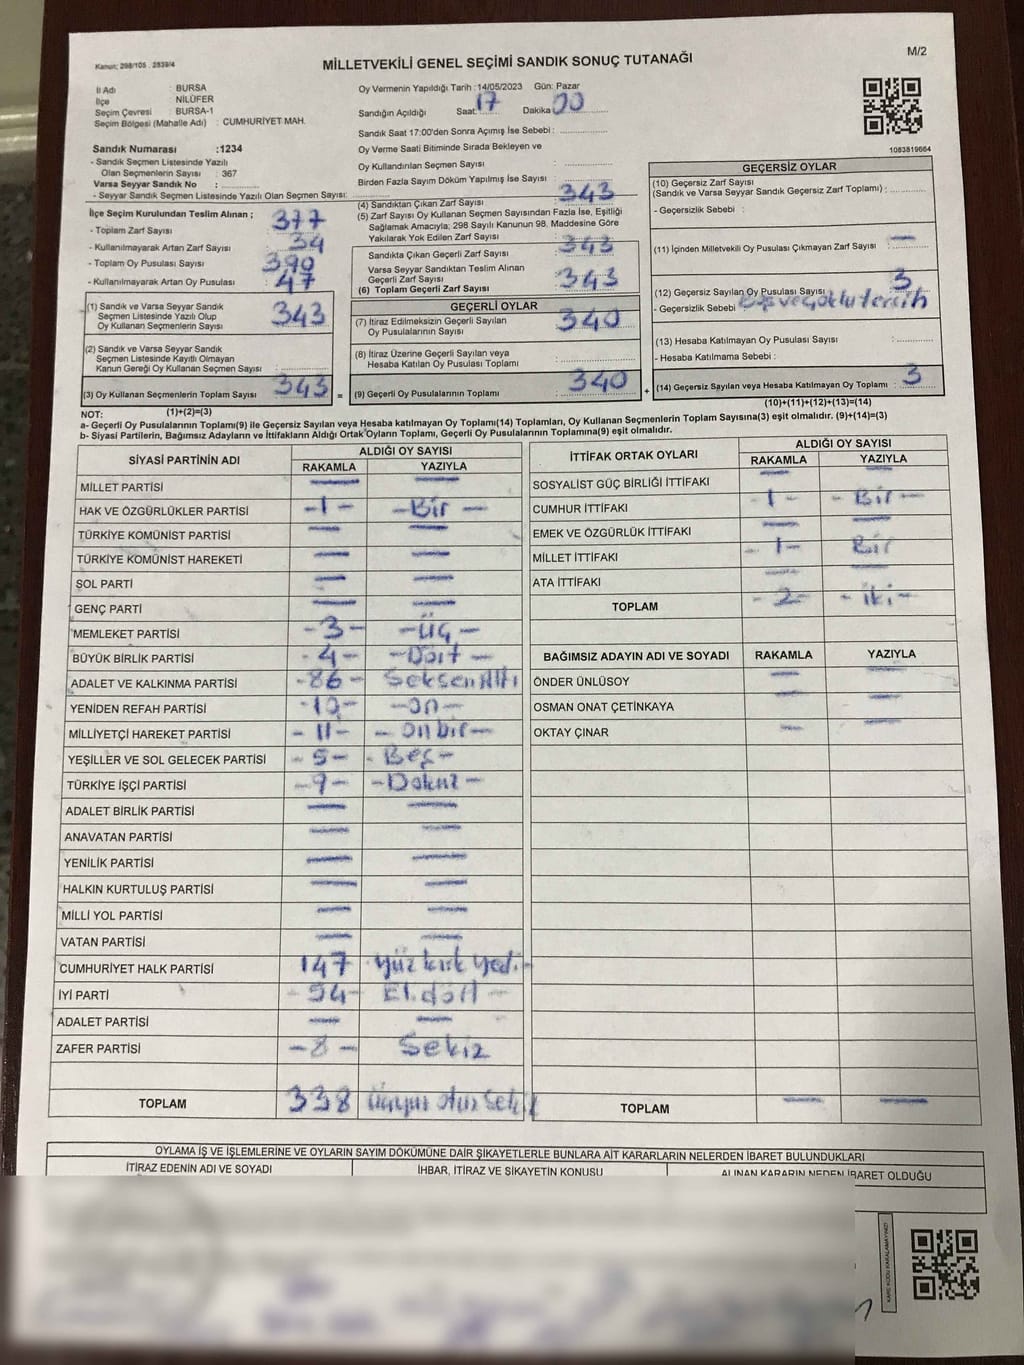 Kanun: 298/105 . 2839/4
MİLLETVEKİLİ GENEL SEÇİMİ SANDIK SONUÇ TUTANAĞI
M/2
İl Adı : BURSA
İlçe : NİLÜFER
Seçim Çevresi : BURSA-1
Seçim Bölgesi (Mahalle Adı) : CUMHURİYET MAH.
Sandık Numarası :1234
- Sandık Seçmen Listesinde Yazılı
Olan Seçmenlerin Sayısı : 367
Varsa Seyyar Sandık No : ..............
- Seyyar Sandık Seçmen Listesinde Yazılı Olan Seçmen Sayısı: ..............
Oy Vermenin Yapıldığı Tarih : 14/05/2023 Gün: Pazar
Sandığın Açıldığı Saat: 17 Dakika: 00
Sandık Saat 17:00'den Sonra Açımış İse Sebebi : ..............
Oy Verme Saati Bitiminde Sırada Bekleyen ve
Oy Kullandırılan Seçmen Sayısı : ..............
Birden Fazla Sayım Döküm Yapılmış İse Sayısı : ..............
1083819664
İlçe Seçim Kurulundan Teslim Alınan ;
- Toplam Zarf Sayısı : 377
- Kullanılmayarak Artan Zarf Sayısı : 34
- Toplam Oy Pusulası Sayısı : 390
- Kullanılmayarak Artan Oy Pusulası : 47
(1) Sandık ve Varsa Seyyar Sandık
Seçmen Listesinde Yazılı Olup
Oy Kullanan Seçmenlerin Sayısı : 343
(2) Sandık ve Varsa Seyyar Sandık
Seçmen Listesinde Kayıtlı Olmayan
Kanun Gereği Oy Kullanan Seçmen Sayısı : ..............
(3) Oy Kullanan Seçmenlerin Toplam Sayısı : 343 =
(1)+(2)=(3)
(4) Sandıktan Çıkan Zarf Sayısı : 343
(5) Zarf Sayısı Oy Kullanan Seçmen Sayısından Fazla İse, Eşitliği
Sağlamak Amacıyla; 298 Sayılı Kanunun 98. Maddesine Göre
Yakılarak Yok Edilen Zarf Sayısı : ..............
Sandıkta Çıkan Geçerli Zarf Sayısı : 343
Varsa Seyyar Sandıktan Teslim Alınan
Geçerli Zarf Sayısı : ..............
(6) Toplam Geçerli Zarf Sayısı : 343
GEÇERLİ OYLAR
(7) İtiraz Edilmeksizin Geçerli Sayılan
Oy Pusulalarının Sayısı : 340
(8) İtiraz Üzerine Geçerli Sayılan veya
Hesaba Katılan Oy Pusulası Toplamı : ..............
(9) Geçerli Oy Pusulalarının Toplamı : 340 +
GEÇERSİZ OYLAR
(10) Geçersiz Zarf Sayısı
(Sandık ve Varsa Seyyar Sandık Geçersiz Zarf Toplamı) : ..............
- Geçersizlik Sebebi :
(11) İçinden Milletvekili Oy Pusulası Çıkmayan Zarf Sayısı : —
(12) Geçersiz Sayılan Oy Pusulası Sayısı : 3
- Geçersizlik Sebebi : Boş ve Çoklu tercih
(13) Hesaba Katılmayan Oy Pusulası Sayısı : ..............
- Hesaba Katılmama Sebebi :
(14) Geçersiz Sayılan veya Hesaba Katılmayan Oy Toplamı : 3
(10)+(11)+(12)+(13)=(14)
NOT:
a- Geçerli Oy Pusulalarının Toplamı(9) ile Geçersiz Sayılan veya Hesaba katılmayan Oy Toplamı(14) Toplamları, Oy Kullanan Seçmenlerin Toplam Sayısına(3) eşit olmalıdır. (9)+(14)=(3)
b- Siyasi Partilerin, Bağımsız Adayların ve İttifakların Aldığı Ortak Oyların Toplamı, Geçerli Oy Pusulalarının Toplamına(9) eşit olmalıdır.
SİYASİ PARTİNİN ADI ALDIĞI OY SAYISI
RAKAMLA YAZIYLA
MİLLET PARTİSİ — —
HAK VE ÖZGÜRLÜKLER PARTİSİ -1- -Bir-
TÜRKİYE KOMÜNİST PARTİSİ — —
TÜRKİYE KOMÜNİST HAREKETİ — —
SOL PARTİ — —
GENÇ PARTİ — —
MEMLEKET PARTİSİ -3- -Üç-
BÜYÜK BİRLİK PARTİSİ -4- -Dört-
ADALET VE KALKINMA PARTİSİ -86- SeksenAltı
YENİDEN REFAH PARTİSİ -10- -on-
MİLLİYETÇİ HAREKET PARTİSİ -11- -onbir-
YEŞİLLER VE SOL GELECEK PARTİSİ -5- -Beş-
TÜRKİYE İŞÇİ PARTİSİ -9- -Dokuz-
ADALET BİRLİK PARTİSİ — —
ANAVATAN PARTİSİ — —
YENİLİK PARTİSİ — —
HALKIN KURTULUŞ PARTİSİ — —
MİLLİ YOL PARTİSİ — —
VATAN PARTİSİ — —
CUMHURİYET HALK PARTİSİ 147 yüz kırk yedi-
İYİ PARTİ -54- Elidört-
ADALET PARTİSİ — —
ZAFER PARTİSİ -8- Sekiz
TOPLAM 338
İTTİFAK ORTAK OYLARI ALDIĞI OY SAYISI
RAKAMLA YAZIYLA
SOSYALİST GÜÇ BİRLİĞİ İTTİFAKI — —
CUMHUR İTTİFAKI -1- -Bir-
EMEK VE ÖZGÜRLÜK İTTİFAKI — —
MİLLET İTTİFAKI -1- Bir
ATA İTTİFAKI —
TOPLAM -2- -iki-
BAĞIMSIZ ADAYIN ADI VE SOYADI RAKAMLA YAZIYLA
ÖNDER ÜNLÜSOY — —
OSMAN ONAT ÇETİNKAYA — —
OKTAY ÇINAR — —
TOPLAM — —
OYLAMA İŞ VE İŞLEMLERİNE VE OYLARIN SAYIM DÖKÜMÜNE DAİR ŞİKAYETLERLE BUNLARA AİT KARARLARIN NELERDEN İBARET BULUNDUKLARI
İTİRAZ EDENİN ADI VE SOYADI İHBAR, İTİRAZ VE ŞİKAYETİN KONUSU ALINAN KARARIN NEDEN İBARET OLDUĞU
KARE KODU KARALAMAYINIZ!